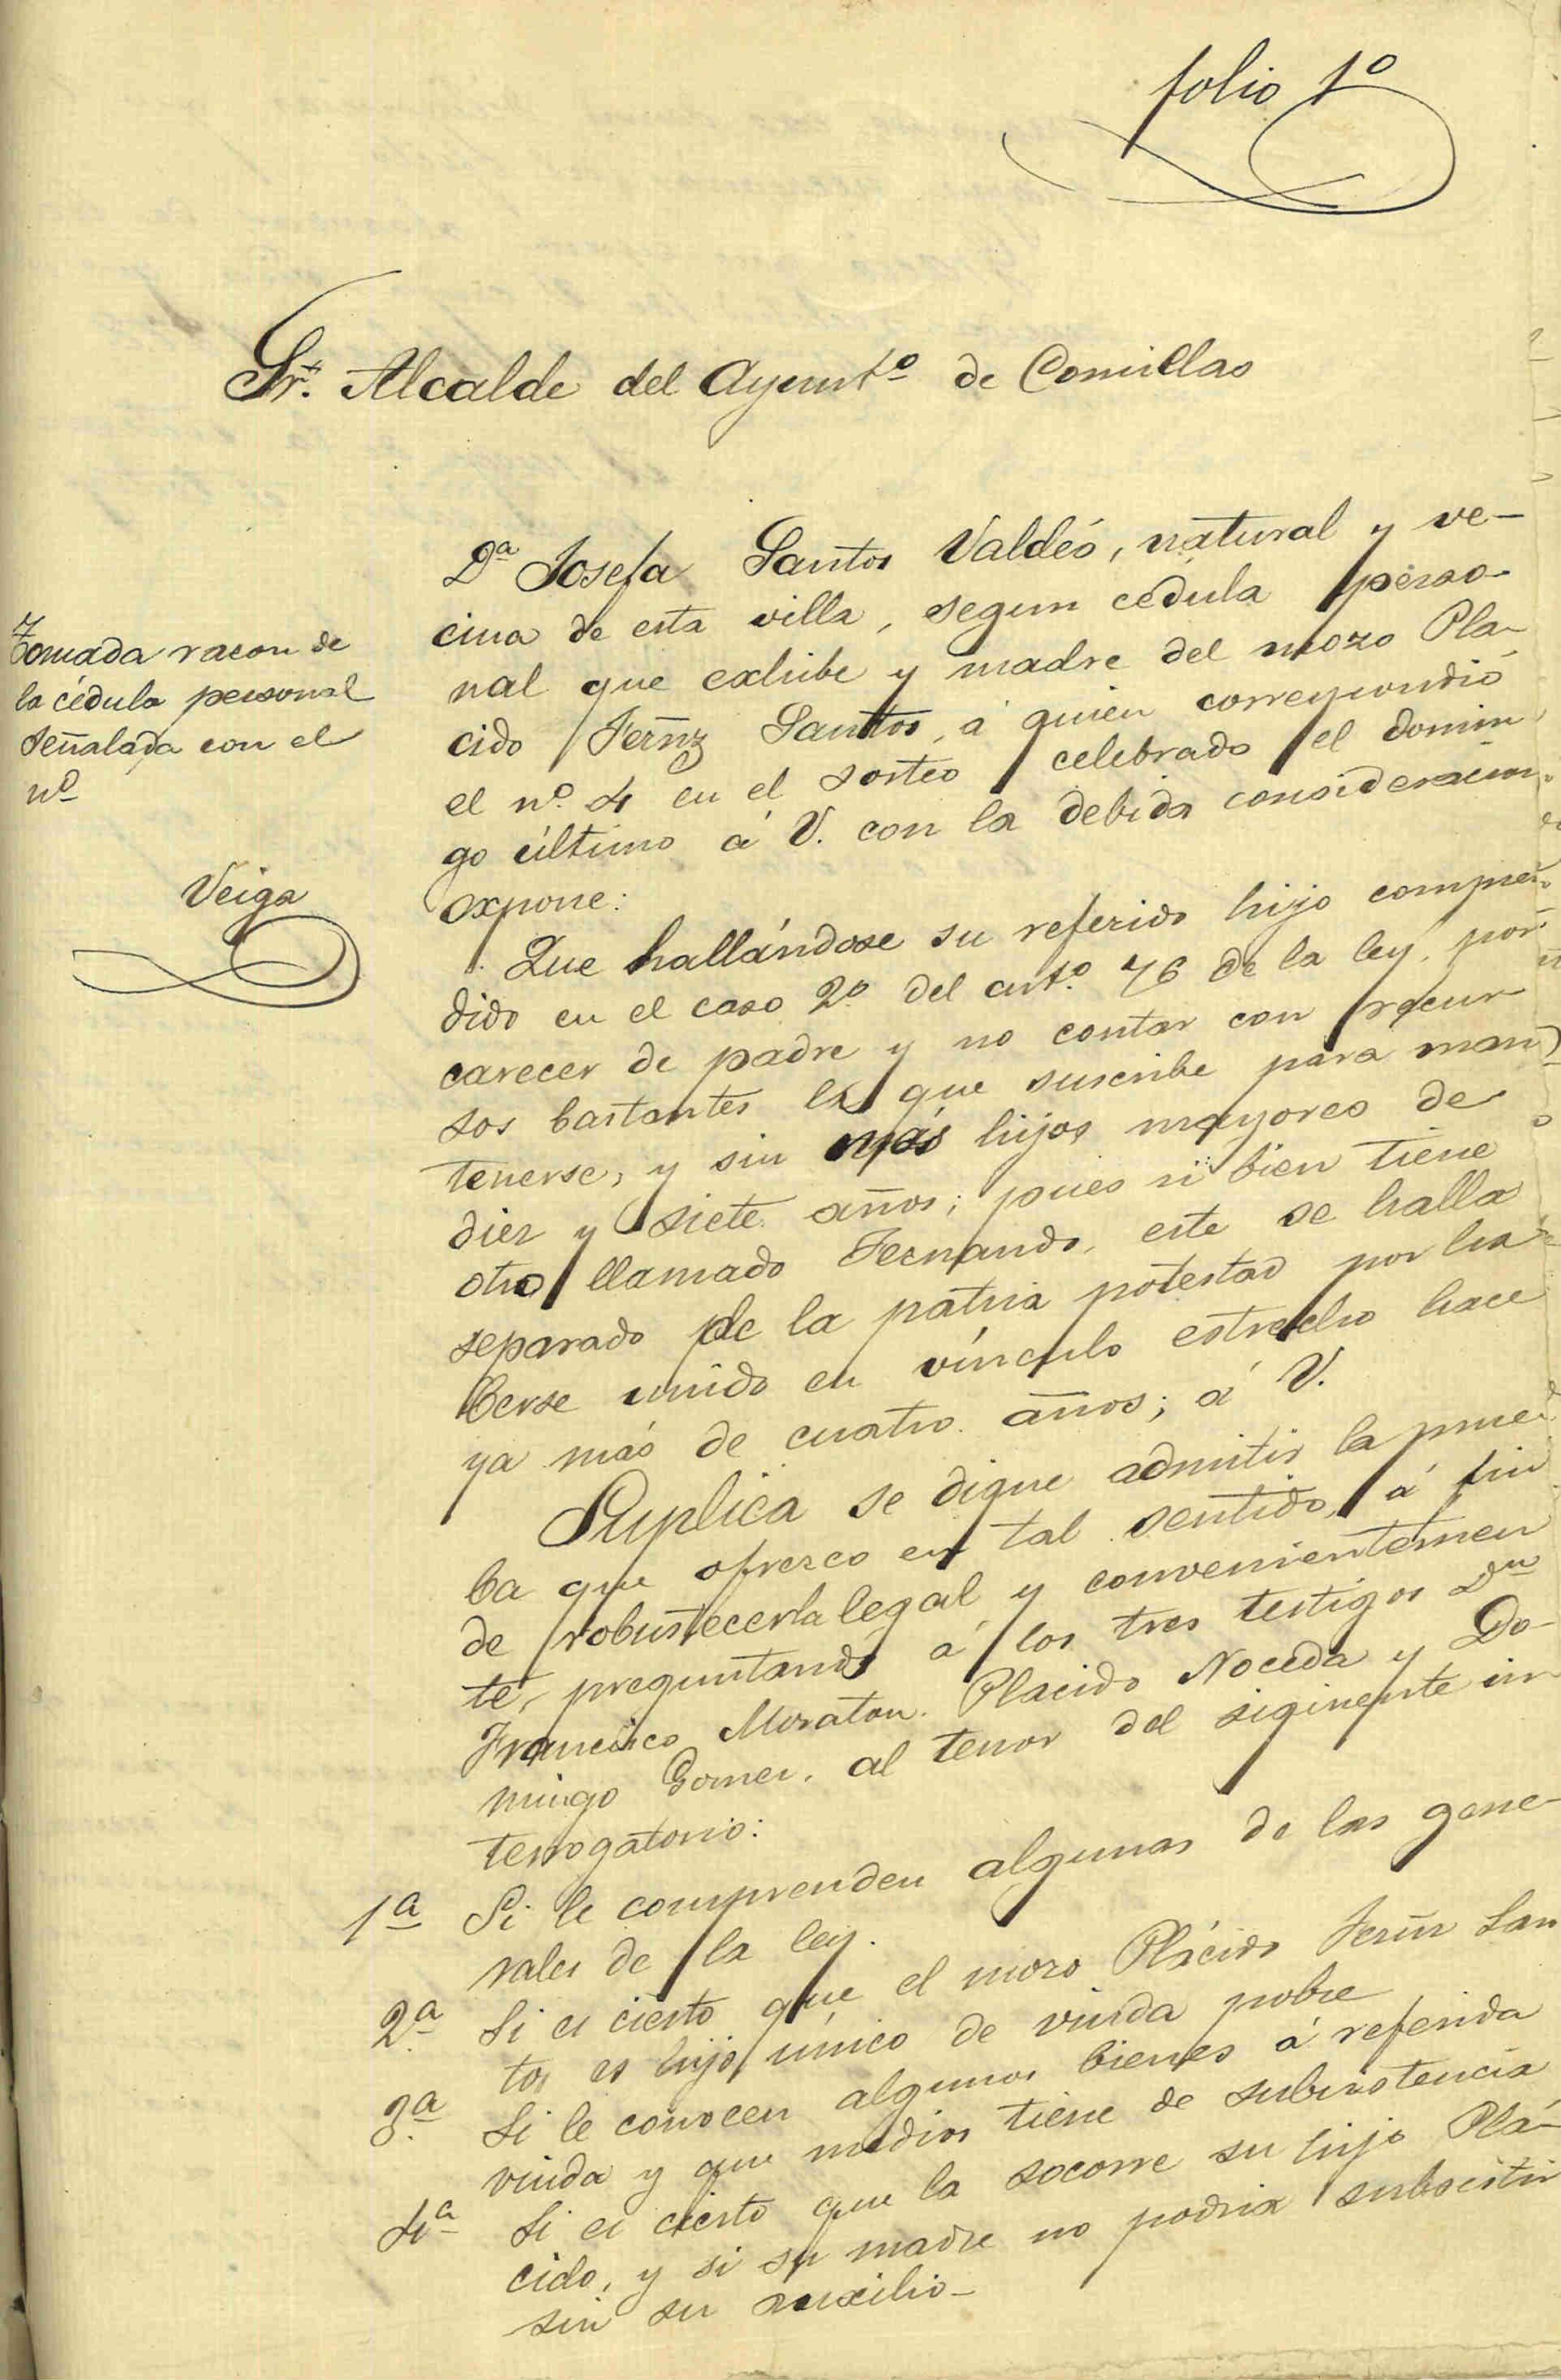 folio 1º
Sr. Alcalde del Ayunt.º de Comillas
Dª Josefa Santos Valdés, natural y ve-
cina de esta villa, segun cédula perso-
nal que exhibe y madre del mozo Plá-
cido Fernz Santos, á quien correspondió
el nº. 4 en el sorteo celebrado el domin
go último á V. con la debida consideracion
expone:
Que hallándose su referido hijo compren
dido en el caso 2º del art.º 76 de la ley, por
carecer de padre y no contar con recur
sos bastantes la que suscribe para man
tenerse, y sin más hijos mayores de
diez y siete años; pues si bien tiene
otro llamado Fernando, este se halla
separado de la patria potestad por ha
berse unido en vínculo estrecho hace
ya más de cuatro años; á V.
Suplica se digne admitir la prue
ba que ofrezco en tal sentido, á fin
de robustecerla legal y convenientemen
te, preguntando á los tres testigos Dn
Francisco Moraton. Placido Noceda y Do-
mingo Gomez, al tenor del siguiente in
terrogatorio:
1ª Si le comprenden algunas de las gene-
rales de la ley.
2ª Si es cierto que el mozo Plácido Fernz San
tos es hijo único de viuda pobre
3ª Si le conocen algunos bienes á referida
viuda y que medios tiene de subsistencia
4ª Si es cierto que la socorre su hijo Plá-
cido, y si su madre no podria subsistir
sin su auxilio-
Tomada razon de
la cédula personal
señalada con el
nº
Veiga